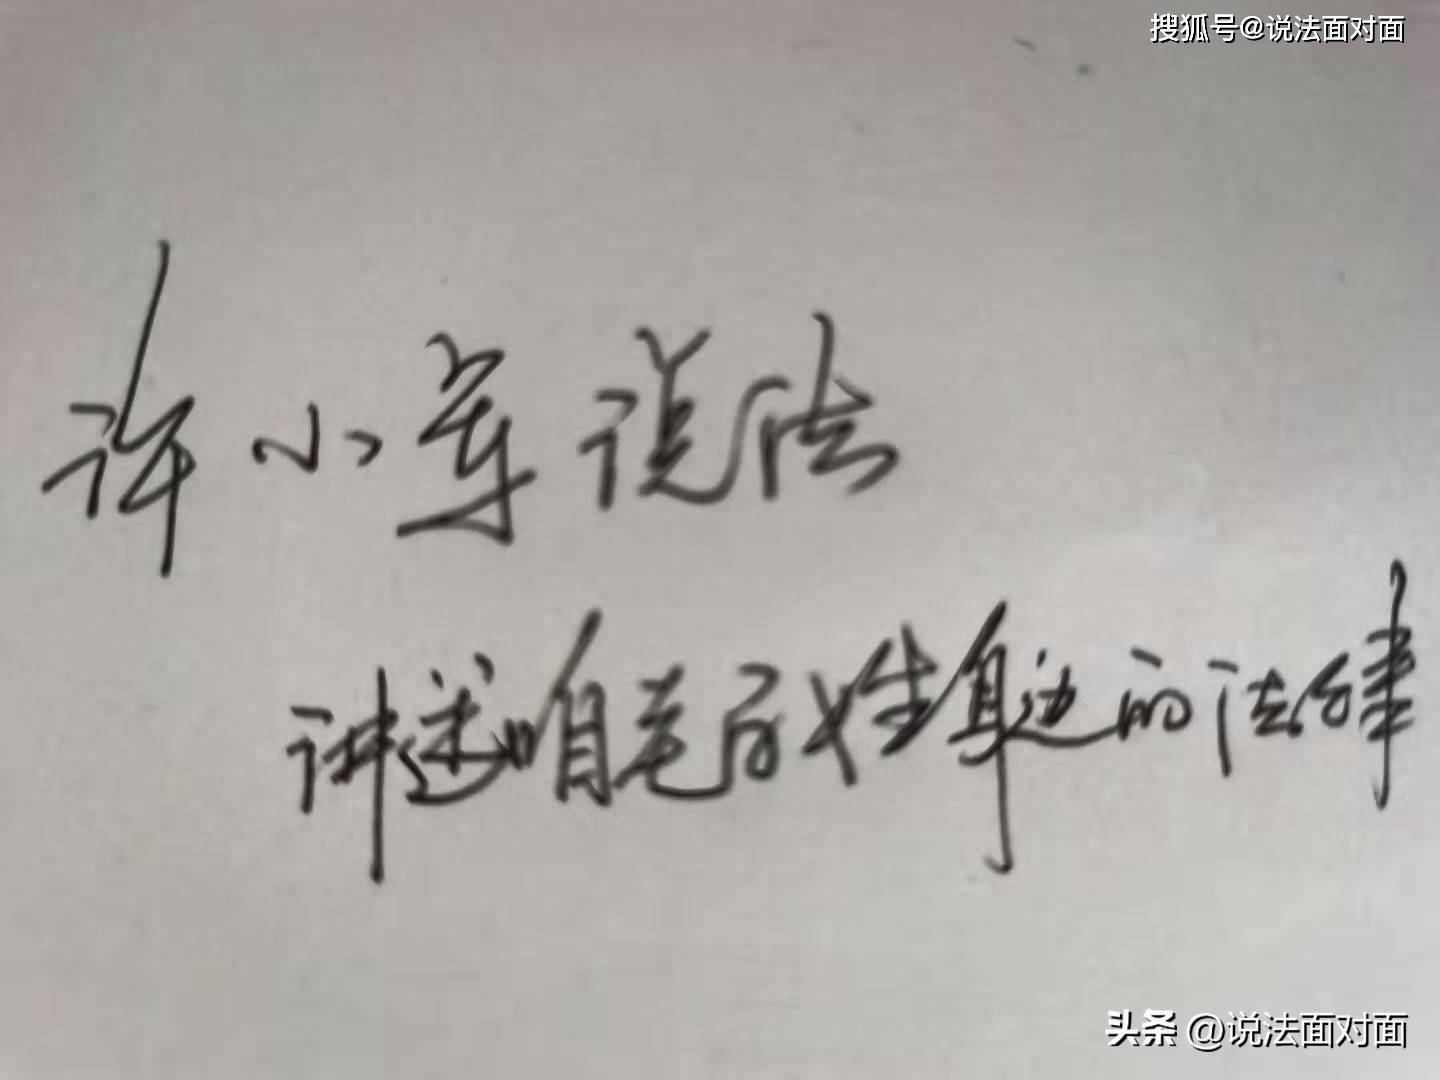 搜狐号@说法面对面
许小军说法
讲述咱老百姓身边的法律
头条 @说法面对面